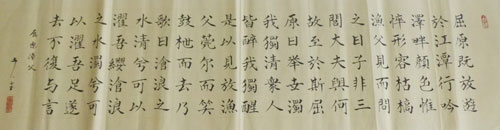 屈原既放遊
於江潭行吟
澤畔顏色憔
悴形容枯槁
漁父見而問
之曰子非三
閭大夫與何
故至於斯屈
原曰舉世濁
我獨清衆人
皆醉我獨醒
是以見放漁
父莞尔而笑
鼓枻而去乃
歌曰滄浪之
水清兮可以
濯吾纓滄浪
之水濁兮可
以濯吾足遂
去不復與言